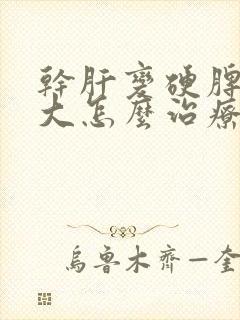 幹肝變硬脾
大怎麼治療
烏魯木齊一奎